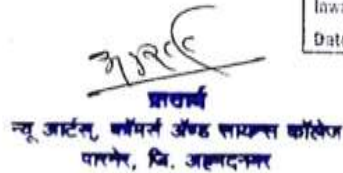 Inwa
Date
प्राचार्य
न्यू आर्टस्, कॉमर्स ॲण्ड सायन्स कॉलेज
पारनेर, जि. अहमदनगर